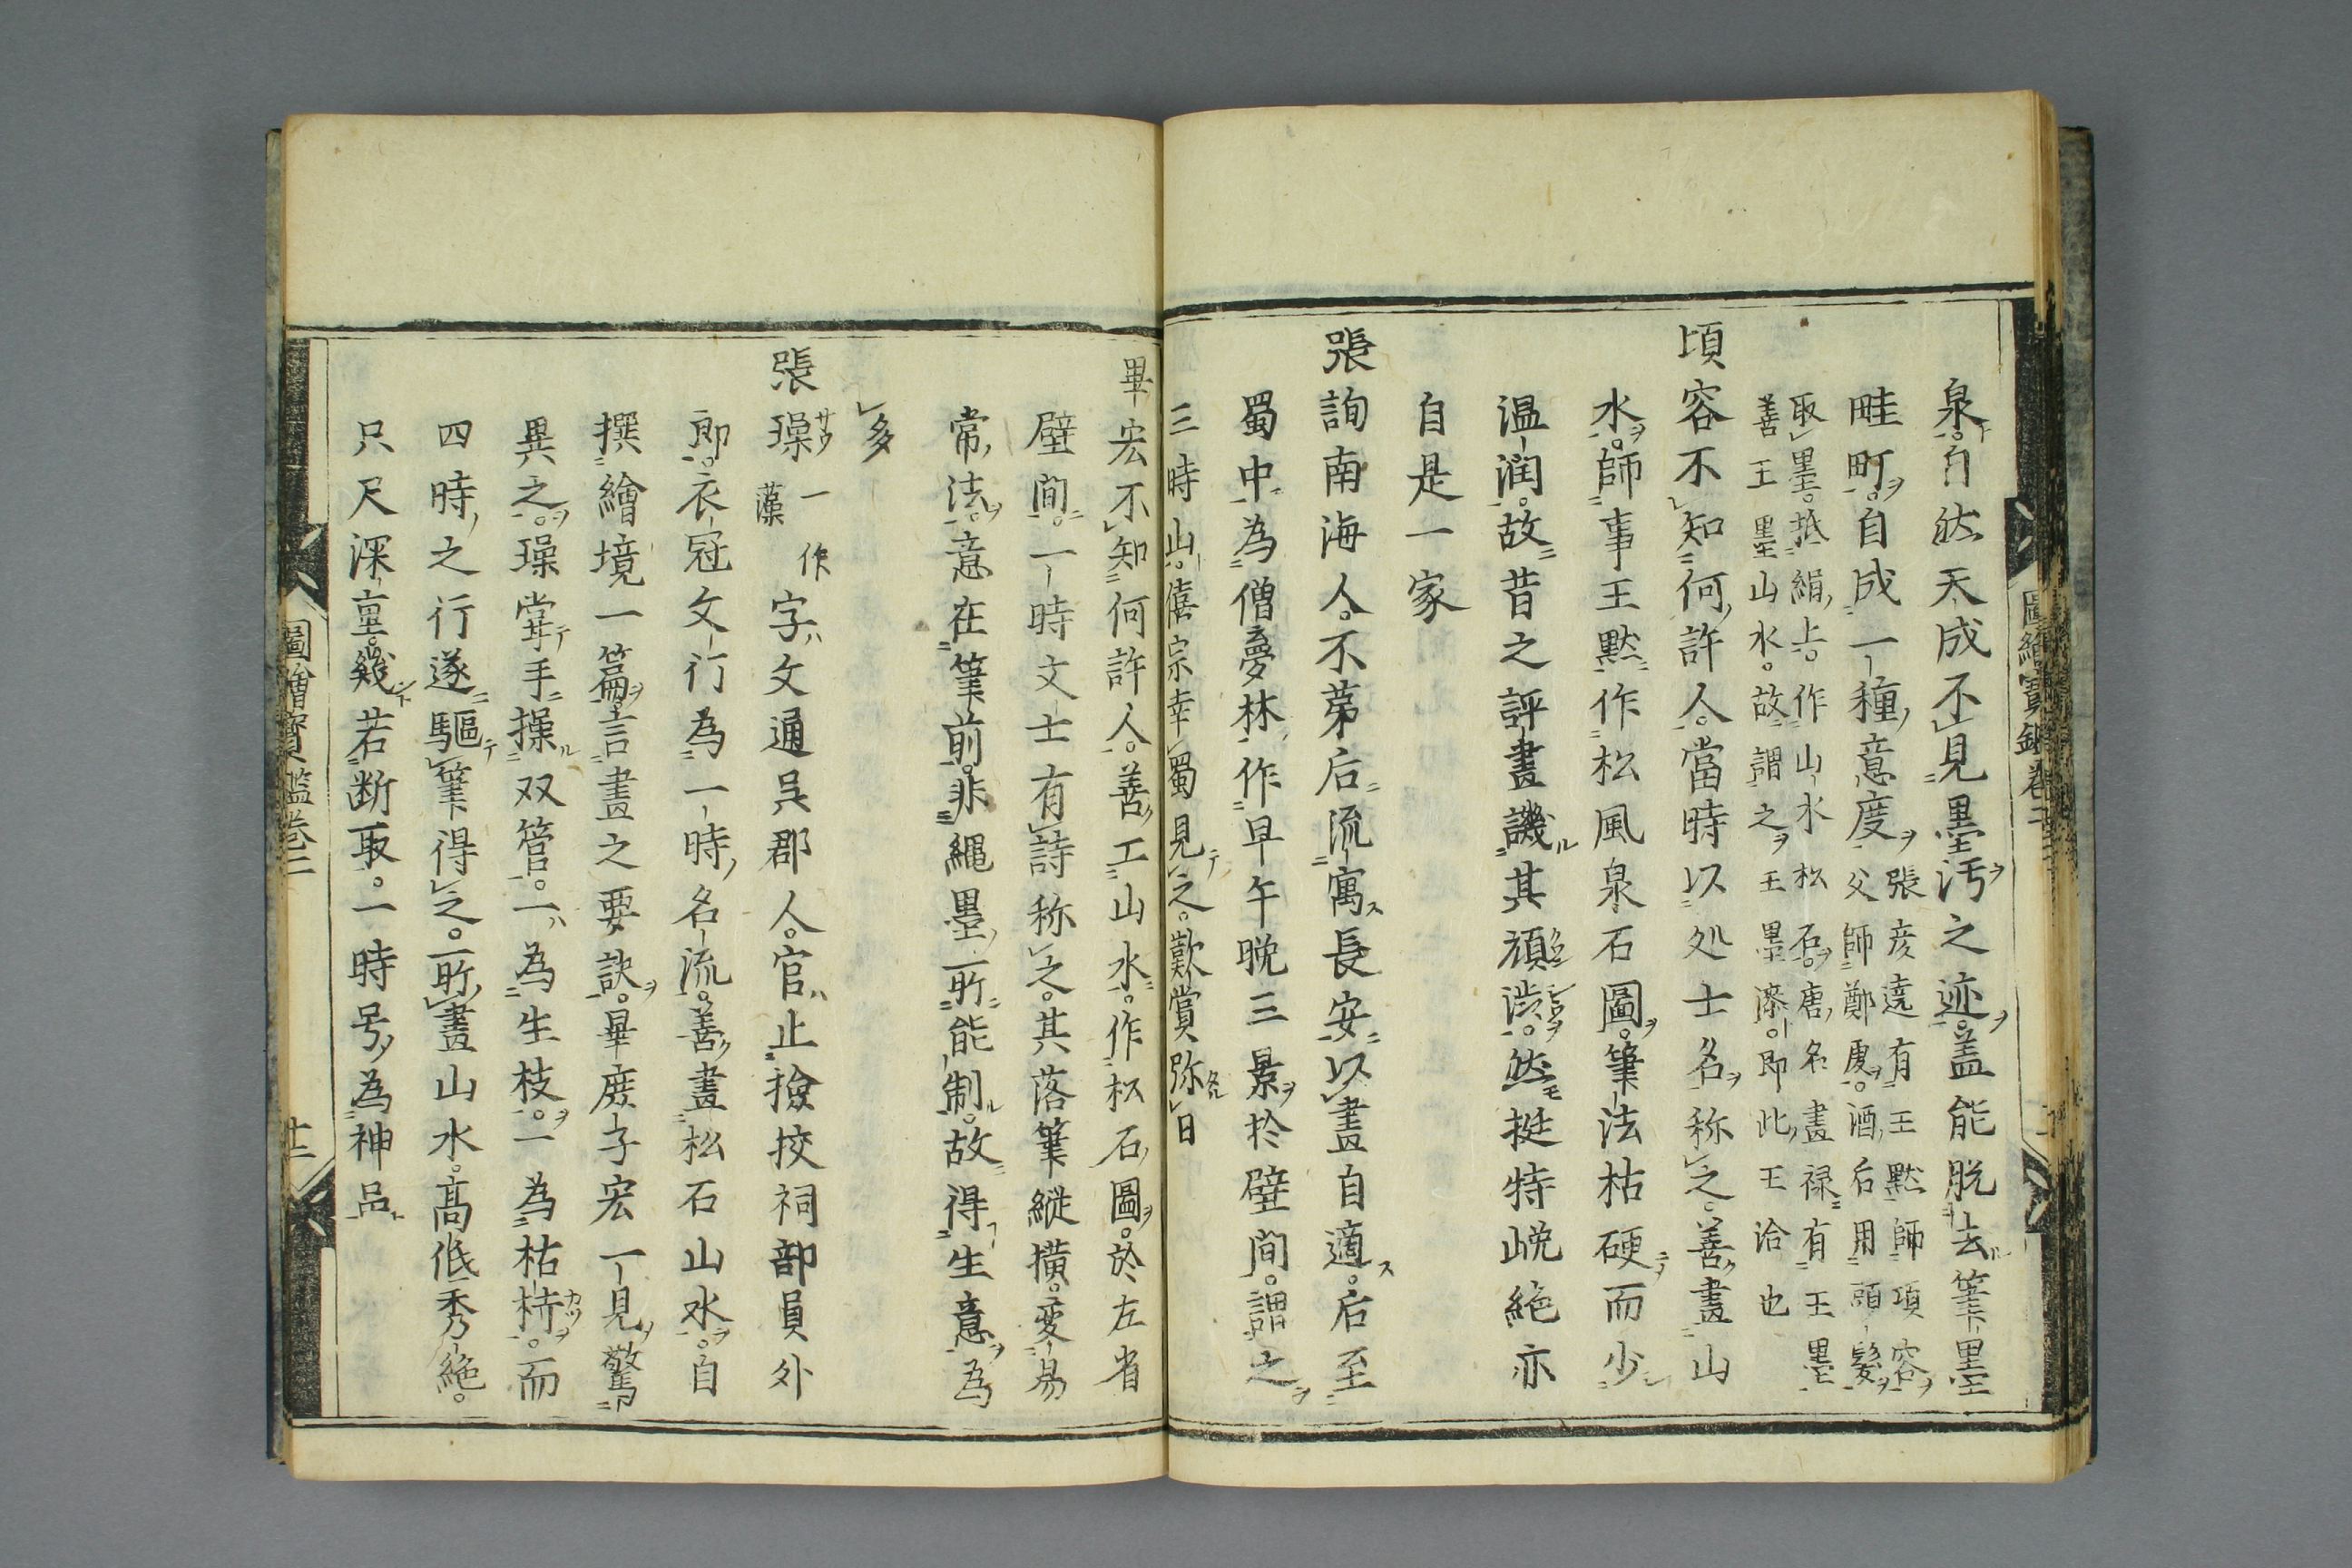 泉自然天成不見墨汚之迹盖能脱去筆墨
畦町自成一種意度
張彦遠有王黙師項容
父師鄭䖍酒后用頭髮
取墨抵絹上作山水松石唐名畫禄有王墨
善王墨山水故謂之王墨潑即此王洽也
項容不知何許人當時以処士名称之善畫山
水師事王黙作松風泉石圖筆法枯硬而少
温润故昔之評畫譏其頑渋然挺特峻絶亦
自是一家
張詢南海人不第后流寓長安以畫自適后至
蜀中為僧夢林作早午晩三景於壁間謂之
三時山僖宗幸蜀見之歎賞弥日
畢宏不知何許人善工山水作松石圖於左省
壁間一時文士有詩称之其落筆縱横変易
常法意在筆前非繩墨所能制故得生意為
多
張璪
一作
藻
字文通吴郡人官止撿挍祠部員外
郎衣冠文行為一時名流善畫松石山水自
撰繪境一篇言畫之要訣畢庶子宏一見驚
異之璪甞手操双管一為生枝一為枯枿而
四時之行遂驅筆得之所畫山水高低秀絶
只尺深重幾若断取一時号為神品
圖繪寳鑑卷二
圖繪寳鑑卷二
十二